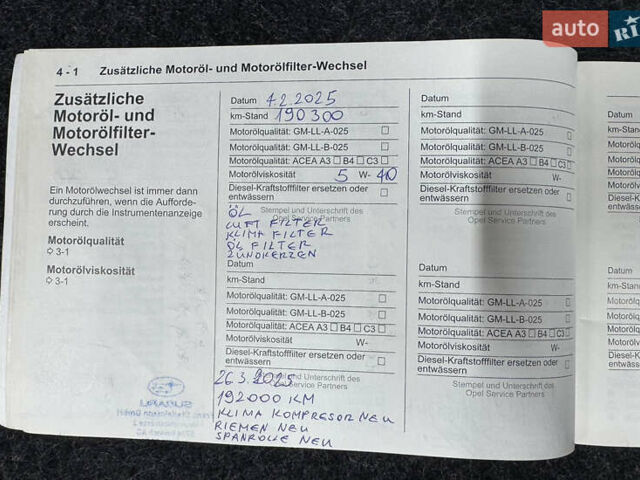 auto RIA
4 - 1 Zusätzliche Motoröl- und Motorölfilter-Wechsel
Zusätzliche
Motoröl- und
Motorölfilter-
Wechsel
Ein Motorölwechsel ist immer dann
durchzuführen, wenn die Aufforde-
rung durch die Instrumentenanzeige
erscheint.
Motorölqualität
3-1
Motorölviskosität
3-1
SUBARU
Datum 4.2.2025
km-Stand 190300
Motorölqualität: GM-LL-A-025
Motorölqualität: GM-LL-B-025
Motorölqualität: ACEA A3 B4 C3
Motorölviskosität 5 W- 40
Diesel-Kraftstofffilter ersetzen oder
entwässern
Stempel und Unterschrift des
Opel Service Partners
ÖL
LUFT FILTER
KLIMA FILTER
ÖL FILTER
ZÜNDKERZEN
Datum
km-Stand
Motorölqualität: GM-LL-A-025
Motorölqualität: GM-LL-B-025
Motorölqualität: ACEA A3 B4 C3
Motorölviskosität W-
Diesel-Kraftstofffilter ersetzen oder
entwässern
Stempel und Unterschrift des
Opel Service Partners
26.3.2025
192000 KM
KLIMA KOMPRESOR NEU
RIEMEN NEU
SPANROLLE NEU
Datum
km-Stand
Motorölqualität: GM-LL-A-025
Motorölqualität: GM-LL-B-025
Motorölqualität: ACEA A3 B4 C3
Motorölviskosität W-
Diesel-Kraftstofffilter ersetzen oder
entwässern
Stempel und Unterschrift des
Opel Service Partners
Datum
km-Stand
Motorölqualität: GM-LL-A-025
Motorölqualität: GM-LL-B-025
Motorölqualität: ACEA A3 B4 C3
Motorölviskosität W-
Diesel-Kraftstofffilter ersetzen oder
entwässern
Stempel und Unterschrift des
Opel Service Partners